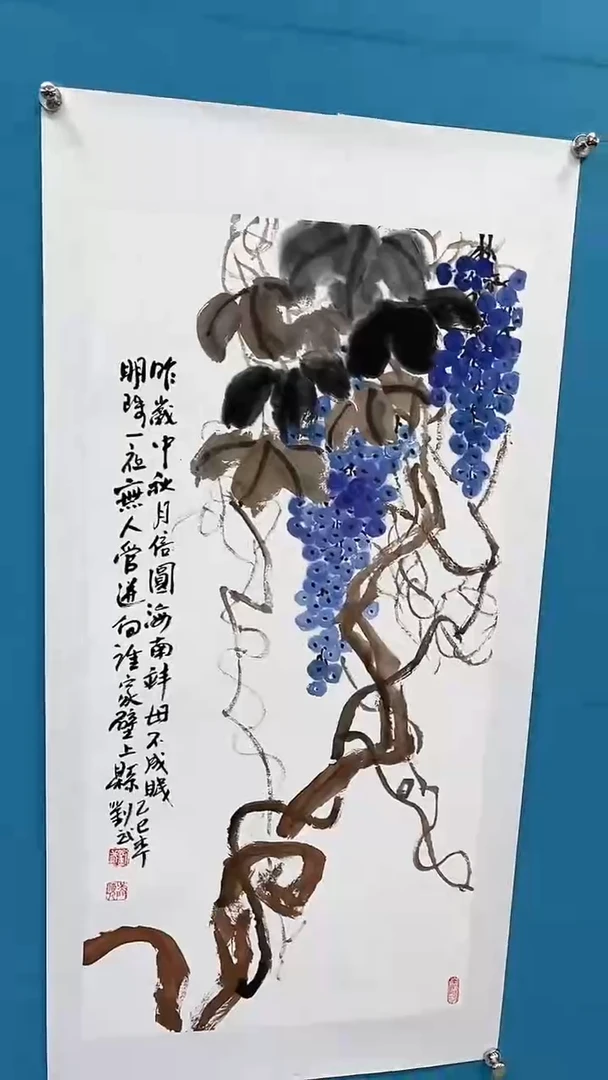 昨歲中秋月倍圓海南蚌母不成眠
明珠一夜無人管迸向誰家壁上縣
乙巳年
劉武